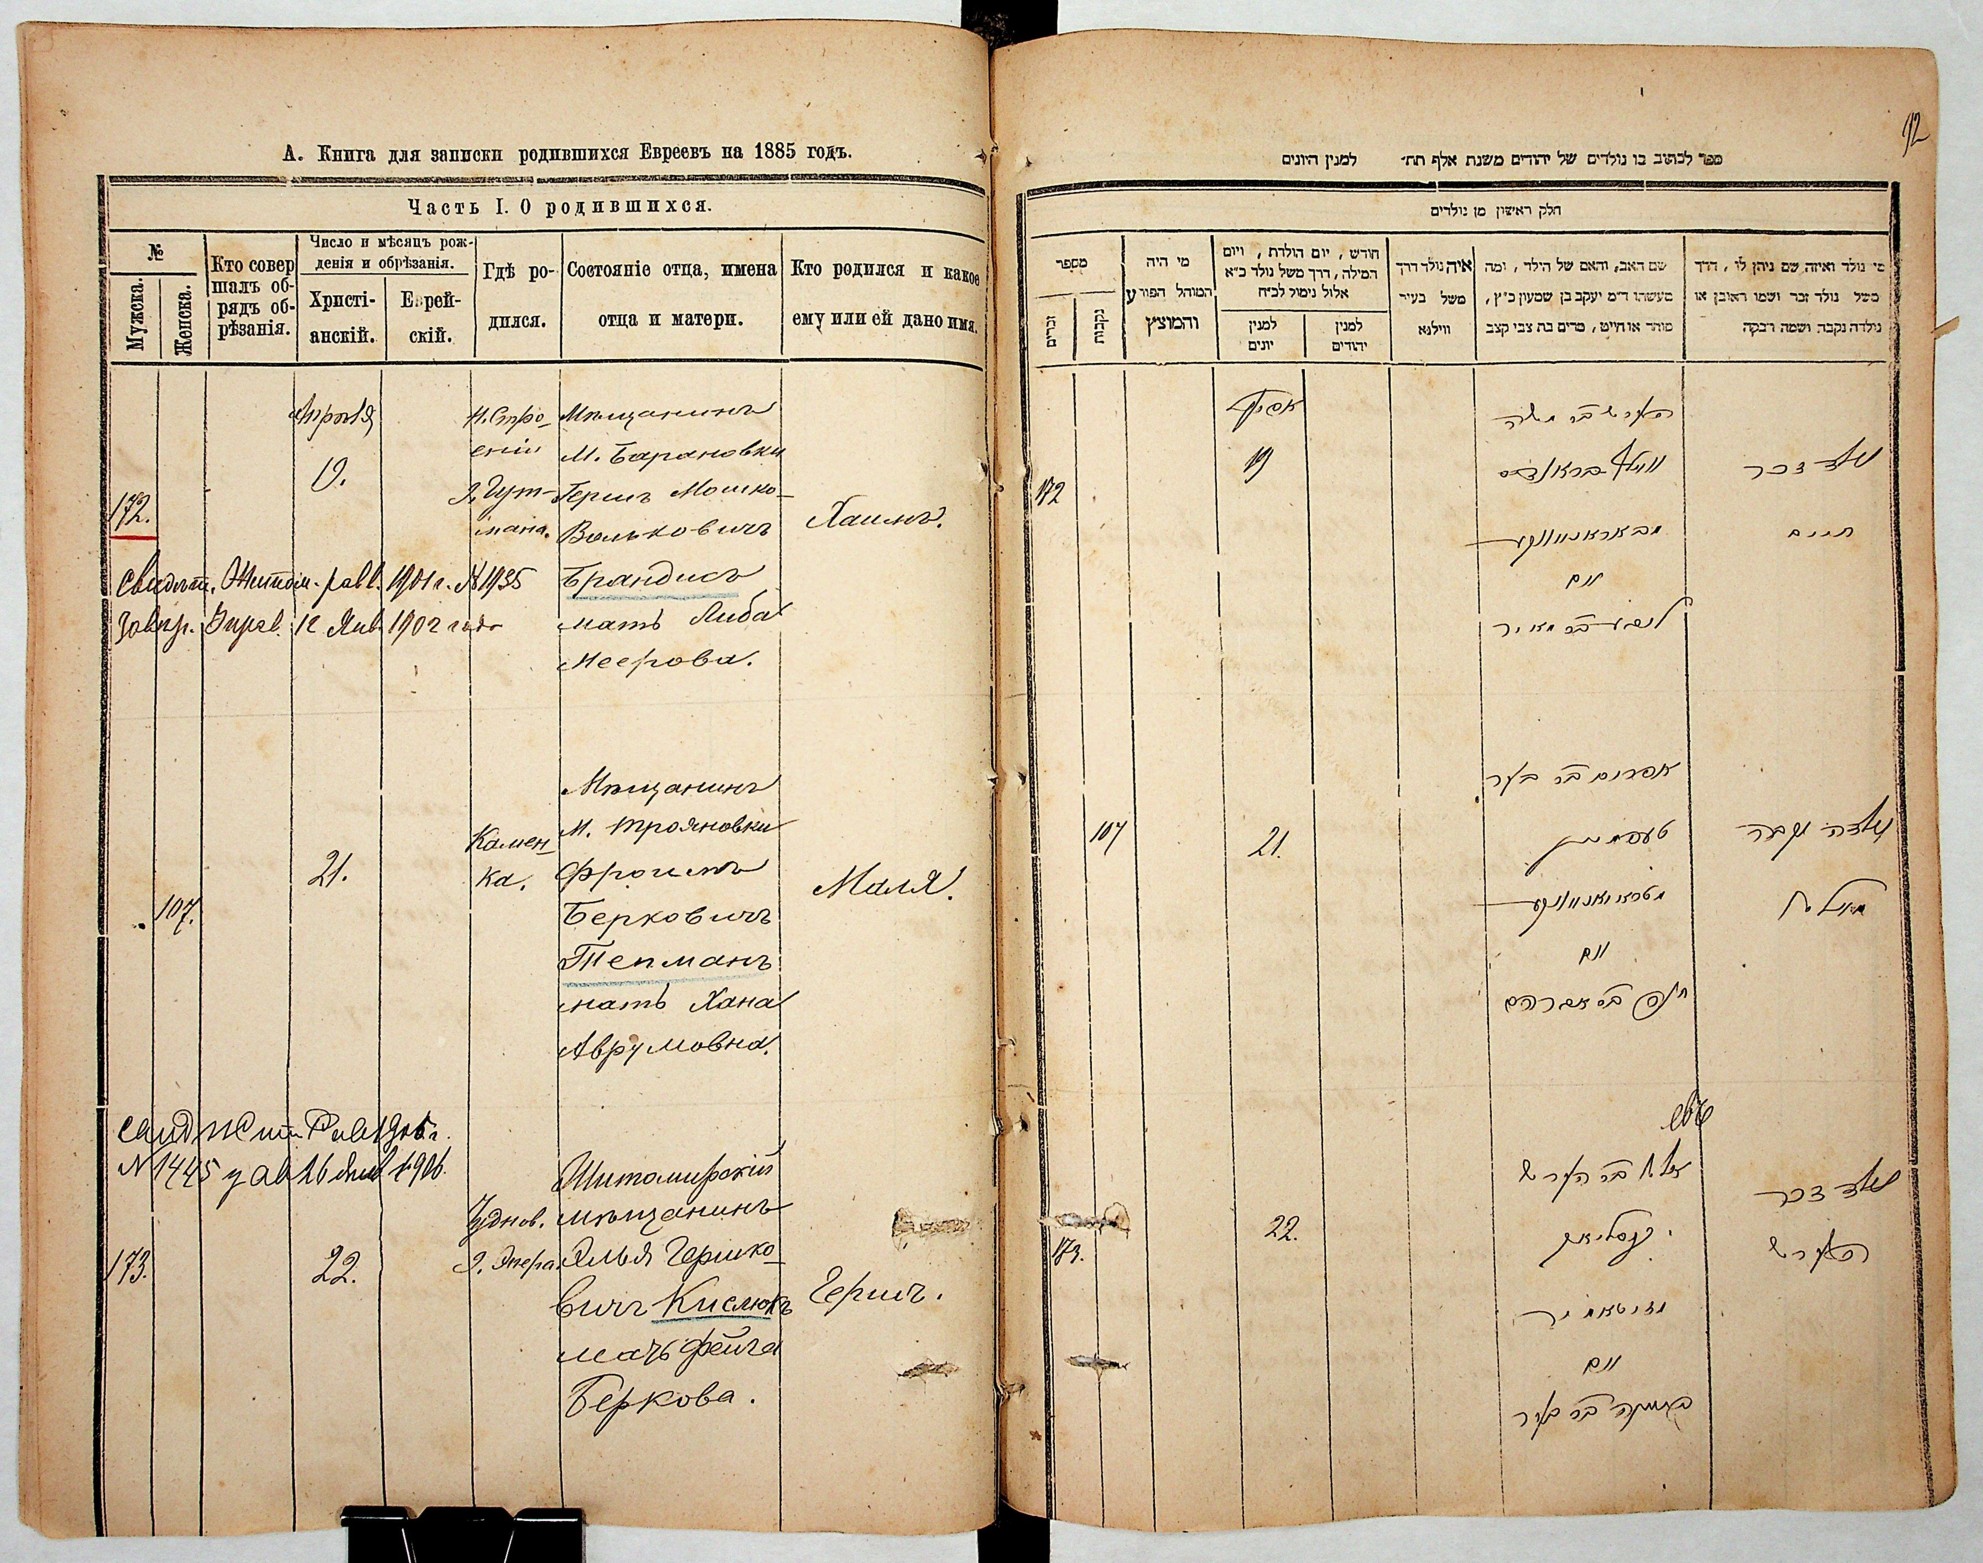 А. Книга для записки родившихся Евреевъ на 1885 годъ.
Часть I. О родившихся.
№
Мужска.
Женска.
Кто совер
шалъ об-
рядъ об-
рѣзанія.
Число и мѣсяцъ рож-
денія и обрѣзанія.
Христі-
анскій.
Еврей-
скій.
Гдѣ ро-
дился.
Состояніе отца, имена
отца и матери.
Кто родился и какое
ему или ей дано имя.
172.
Апрѣля
19.
Н. Стро-
еніи
Д. Гут-
мана.
Мѣщанинъ
М. Барановки
Гершъ Мошко-
Вольковичъ
Брандисъ
мать Либа
Меерова.
Хаимъ.
Свидѣт. Житом. равв. 1901 г. № 1935
12 Янв. 1902 года
107.
21.
Камен-
ка.
Мѣщанинъ
М. Трояновки
Фроимъ
Берковичъ
Тепманъ
мать Хана
Аврумовна.
Маля.
N 1445
173.
22.
Чуднов.
Житомирскій
мѣщанинъ
Илья Гершко-
вичъ Кислюкъ
мать Фейга
Беркова.
Гершъ.
92
ספר לכתוב בו נולדים של יהודים משנת אלף תת׳ למנין היונים
חלק ראשון מן נולדים
מספר
זכרים
נקבות
מי היה
המוהל הפורע
והמוצץ
חודש, יום הולדת, ויום
המילה, דרך משל נולד כ״א
אלול נימול לכ״ח
למנין
יונים
למנין
יהודים
איה נולד דרך
משל בעיר
ווילנא
שם האב, והאם של הילד, ומה
מעשהו ד״מ יעקב בן שמעון כ״ץ,
סוחר או חייט, מרים בת צבי קצב
מי נולד ואיזה שם ניתן לו, דרך
משל נולד זכר ושמו ראובן או
נולדה נקבה ושמה רבקה
172
אפריל
19
הערש בר משה
וואלף בראנדיס
מבאראנאווקע
ואם
ליבע בר מאיר
נולד זכר
חיים
107
21.
אפרים בר בער
טעפמאן
מטראיאנאווקע
ואם
חנה בר אברהם
נולדה נקבה
מאליא
173.
22.
אליה בר הערש
קיסליוק
מזיטאמיר
ואם
פייגא בר בער
נולד זכר
הערש